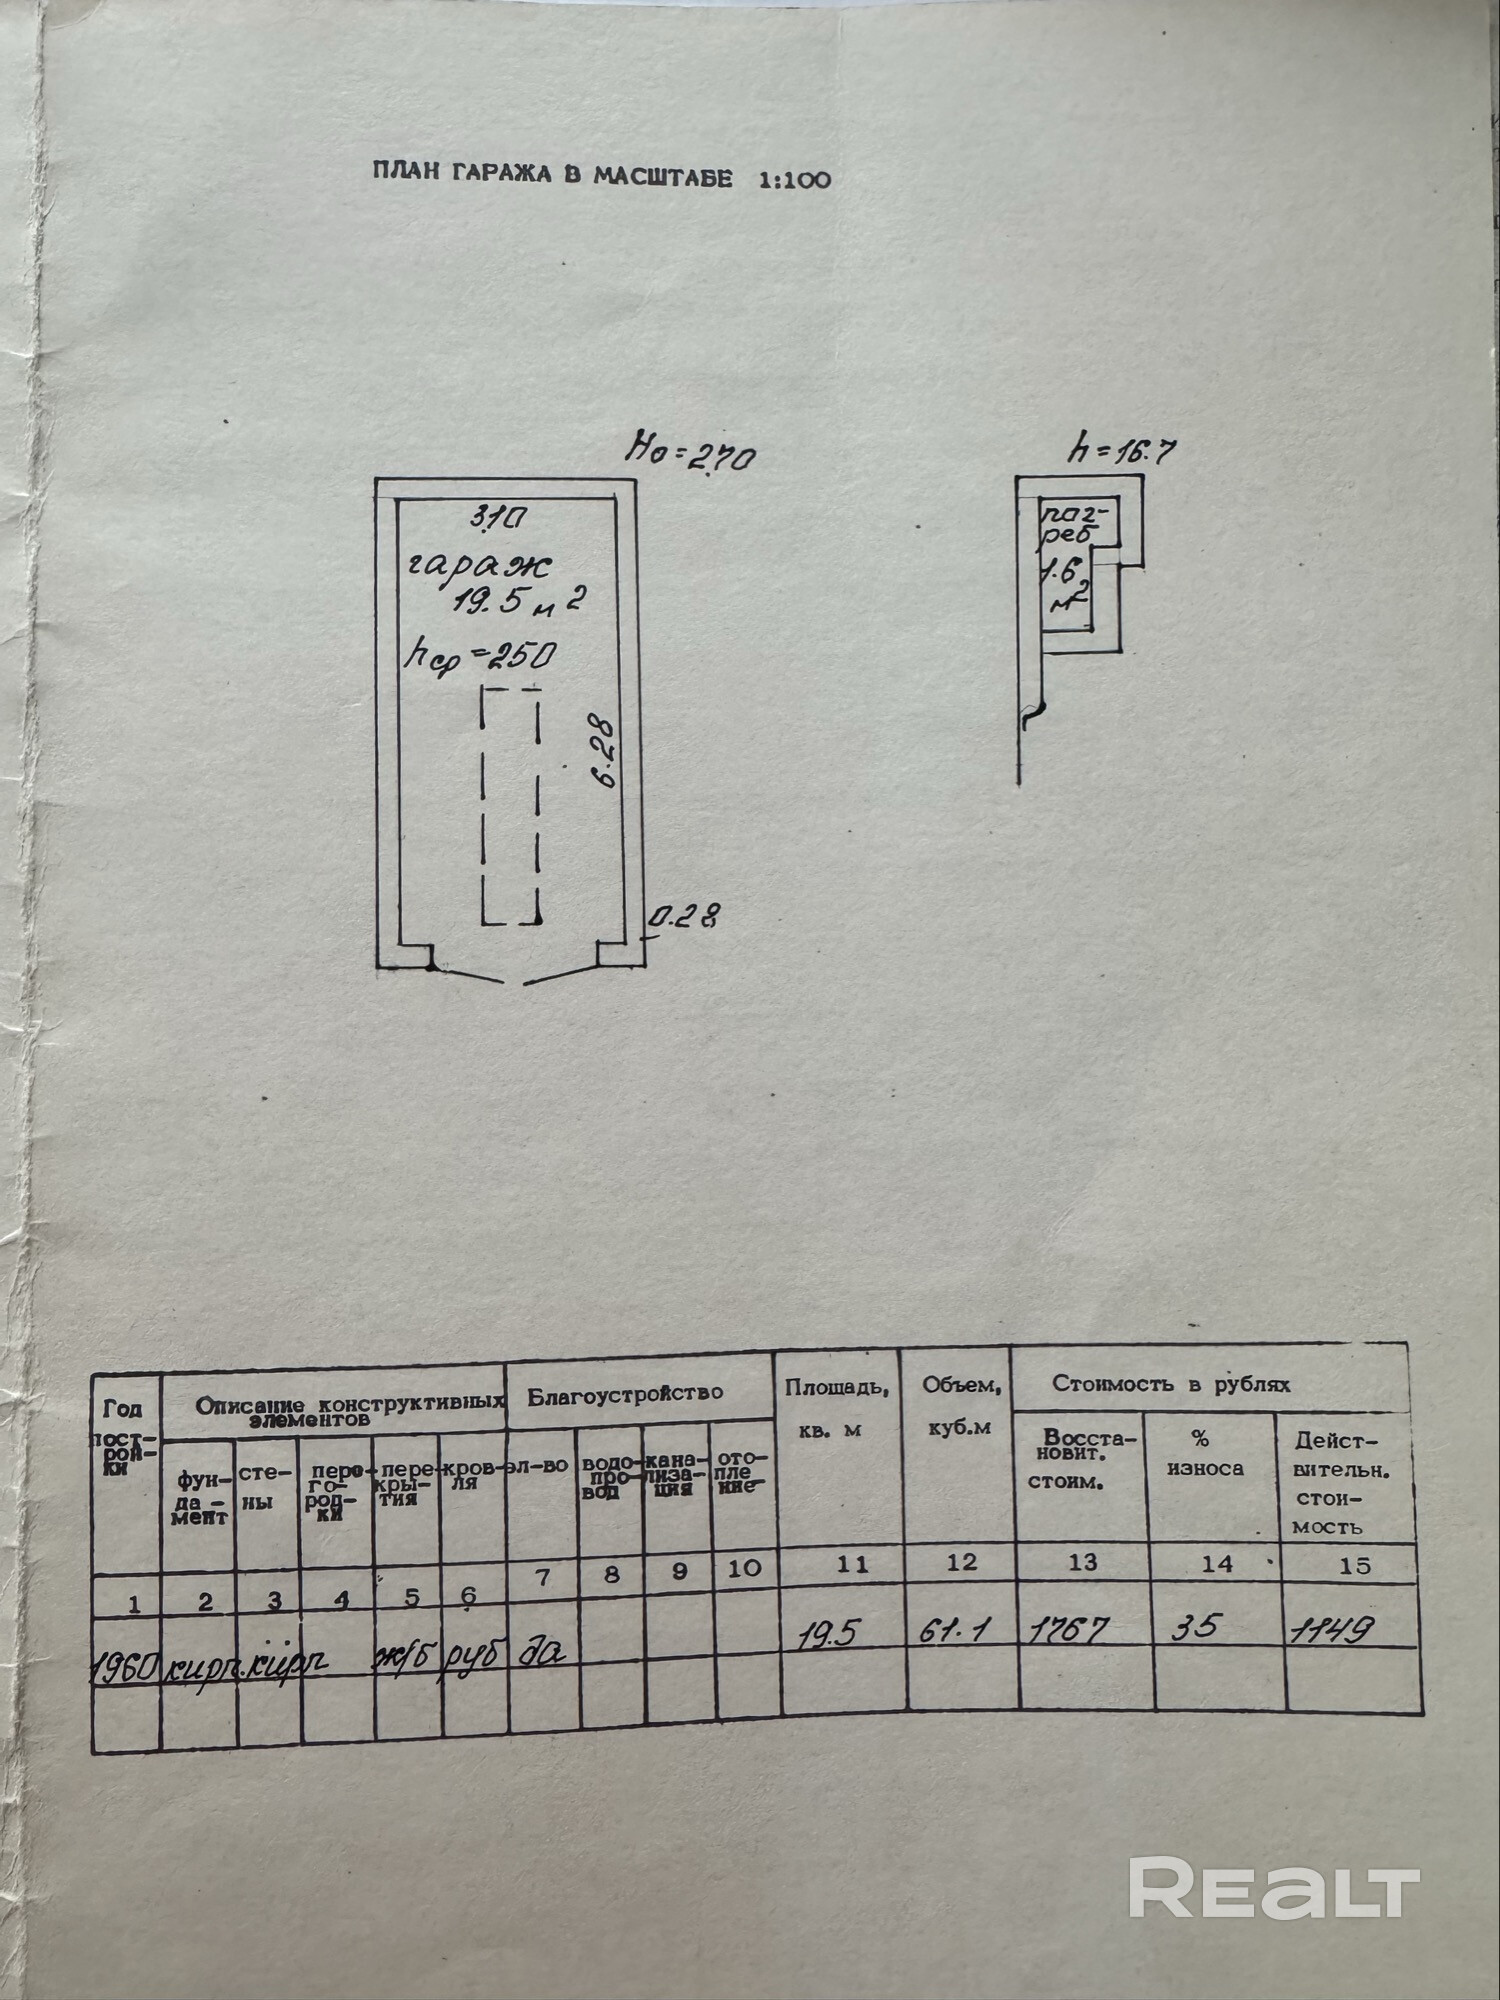 ПЛАН ГАРАЖА В МАСШТАБЕ 1:100
Hо=2.70
3.10
гараж
19.5 м2
hср=250
6.28
0.28
h=16.7
пог-
реб
1.6
м2
Год
пост-
рой-
ки
Описание конструктивных
элементов
Благоустройство
Площадь,
кв. м
Объем,
куб.м
Стоимость в рублях
фун-
да-
мент
сте-
ны
пере-
го-
род-
ки
пере-
кры-
тия
кров-
ля
эл-во
водо-
про-
вод
кана-
лиза-
ция
ото-
пле-
ние
Восста-
новит.
стоим.
%
износа
Дейст-
вительн.
стои-
мость
1 2 3 4 5 6 7 8 9 10 11 12 13 14 15
1960 кирп. кирп ж/б руб да 19.5 61.1 1767 35 1149
REALT